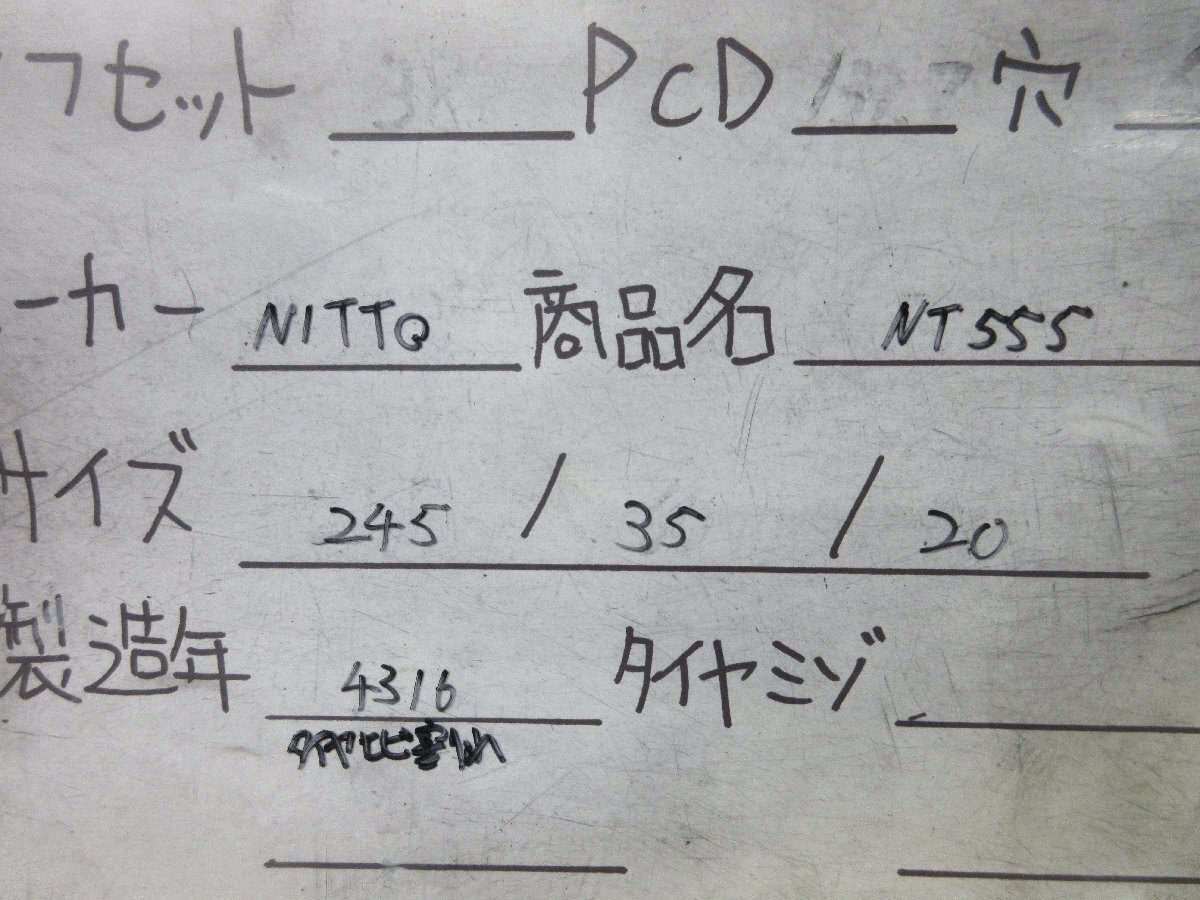 フセット PCD 穴
ーカー NITTO 商品名 NT555
サイズ 245 / 35 / 20
製造年 4316 タイヤミゾ
タイヤヒビ割れ